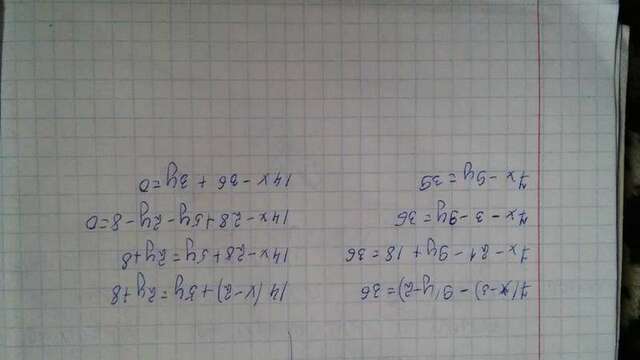 7(x-3) - 9(y+2) = 36
7x - 21 - 9y + 18 = 36
7x - 3 - 9y = 36
7x - 9y = 39
14(x-2) + 5y = 2y + 8
14x - 28 + 5y = 2y + 8
14x - 28 + 5y - 2y - 8 = 0
14x - 36 + 3y = 0